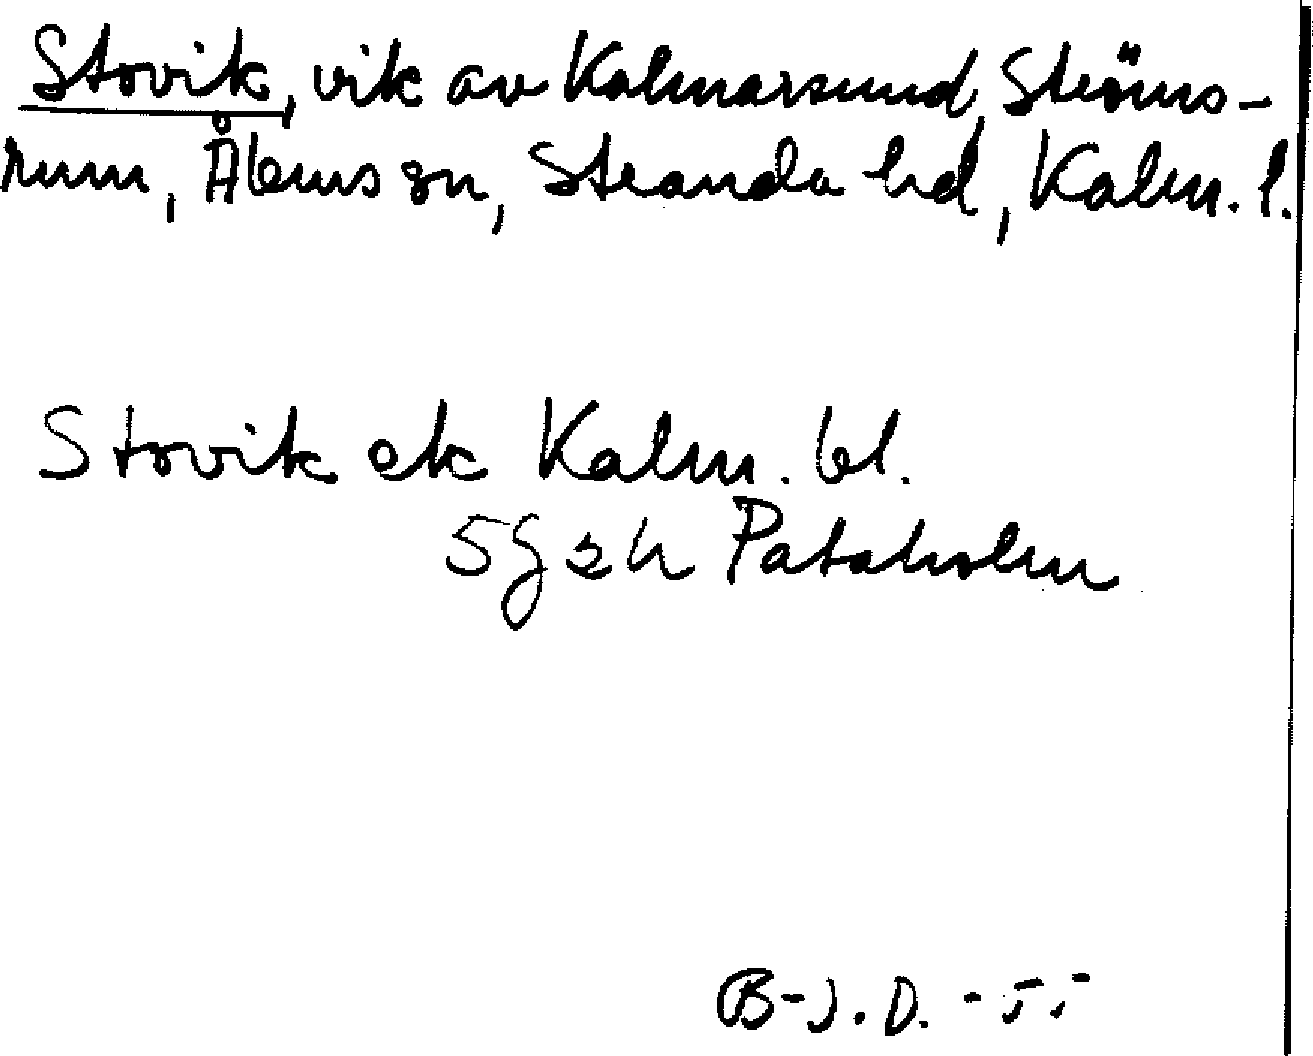 Stovik, vik av Kalmarsund, Ströms-
rum, Ålems sn, Stranda hd, Kalm. l.
Stovik ek Kalm. bl.
5G 2h Pataholm
B-J. D. -55